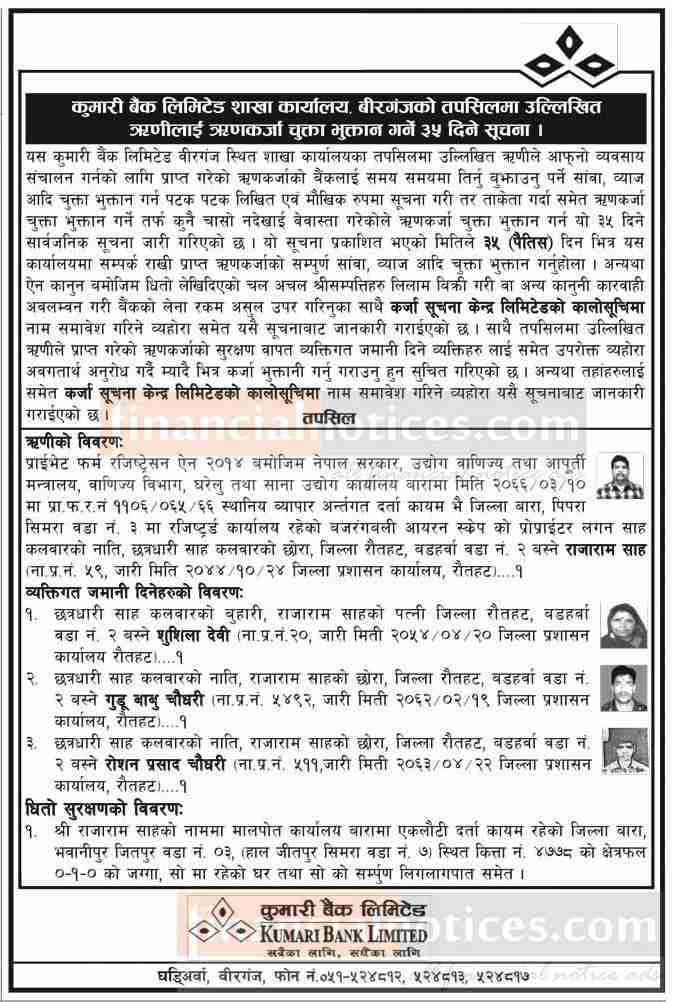 कुमारी बैंक लिमिटेड शाखा कार्यालय, बीरगंजको तपसिलमा उल्लिखित
ऋणीलाई ऋणकर्जा चुक्ता भुक्तान गर्ने ३५ दिने सूचना ।
यस कुमारी बैंक लिमिटेड वीरगंज स्थित शाखा कार्यालयका तपसिलमा उल्लिखित ऋणीले आफ्नो व्यवसाय
संचालन गर्नको लागि प्राप्त गरेको ऋणकर्जाको बैंकलाई समय समयमा तिर्नु बुझाउनु पर्ने सांवा, व्याज
आदि चुक्ता भुक्तान गर्न पटक पटक लिखित एवं मौखिक रुपमा सूचना गरी तर ताकेता गर्दा समेत ऋणकर्जा
चुक्ता भुक्तान गर्ने तर्फ कुनै चासो नदेखाई वेवास्ता गरेकोले ऋणकर्जा चुक्ता भुक्तान गर्न यो ३५ दिने
सार्वजनिक सूचना जारी गरिएको छ । यो सूचना प्रकाशित भएको मितिले ३५ (पैतिस) दिन भित्र यस
कार्यालयमा सम्पर्क राखी प्राप्त ऋणकर्जाको सम्पुर्ण सांवा, व्याज आदि चुक्ता भुक्तान गर्नुहोला । अन्यथा
ऐन कानुन बमोजिम धितो लेखिदिएको चल अचल श्रीसम्पत्तिहरु लिलाम बिक्री गरी वा अन्य कानुनी कारवाही
अवलम्वन गरी बैंकको लेना रकम असुल उपर गरिनुका साथै कर्जा सूचना केन्द्र लिमिटेडको कालोसूचिमा
नाम समावेश गरिने व्यहोरा समेत यसै सूचनाबाट जानकारी गराईएको छ । साथै तपसिलमा उल्लिखित
ऋणीले प्राप्त गरेको ऋणकर्जाको सुरक्षण वापत व्यक्तिगत जमानी दिने व्यक्तिहरु लाई समेत उपरोक्त व्यहोरा
अवगतार्थ अनुरोध गर्दै म्यादै भित्र कर्जा भुक्तानी गर्नु गराउनु हुन सुचित गरिएको छ । अन्यथा तहाँहरुलाई
समेत कर्जा सूचना केन्द्र लिमिटेडको कालोसूचिमा नाम समावेश गरिने व्यहोरा यसै सूचनाबाट जानकारी
गराईएको छ ।
financialnotices.com
तपसिल
ऋणीको विवरण:
प्राईभेट फर्म रजिष्ट्रेसन ऐन २०१४ बमोजिम नेपाल सरकार, उद्योग वाणिज्य तथा आपूर्ती
मन्त्रालय, वाणिज्य विभाग, घरेलु तथा साना उद्योग कार्यालय बारामा मिति २०६६/०३/१०
मा प्रा.फ.र.नं ११०६/०६५/६६ स्थानिय व्यापार अर्न्तगत दर्ता कायम भै जिल्ला बारा, पिपरा
सिमरा वडा नं. ३ मा रजिष्टर्ड कार्यालय रहेको बजरंगवली आयरन स्क्रेप को प्रोप्राईटर लगन साह
कलवारको नाति, छत्रधारी साह कलवारको छोरा, जिल्ला रौतहट, बडहर्वा वडा नं. २ बस्ने राजाराम साह
(ना.प्र.नं. ५९, जारी मिति २०४४/१०/२४ जिल्ला प्रशासन कार्यालय, रौतहट)....१
व्यक्तिगत जमानी दिनेहरुको विवरण:
१. छत्रधारी साह कलवारको बुहारी, राजाराम साहको पत्नी जिल्ला रौतहट, बडहर्वा
वडा नं. २ बस्ने शुशिला देवी (ना.प्र.नं.२०, जारी मिती २०५४/०४/२० जिल्ला प्रशासन
कार्यालय रौतहट)....१
२. छत्रधारी साह कलवारको नाति, राजाराम साहको छोरा, जिल्ला रौतहट, बडहर्वा वडा नं.
२ बस्ने गुड्डू बाबु चौधरी (ना.प्र.नं. ५४९२, जारी मिती २०६२/०२/१९ जिल्ला प्रशासन
कार्यालय, रौतहट)....१
३. छत्रधारी साह कलवारको नाति, राजाराम साहको छोरा, जिल्ला रौतहट, बडहर्वा वडा नं.
२ बस्ने रोशन प्रसाद चौधरी (ना.प्र.नं. ५११,जारी मिती २०६३/०४/२२ जिल्ला प्रशासन
कार्यालय, रौतहट)....१
धितो सुरक्षणको विवरण:
१. श्री राजाराम साहको नाममा मालपोत कार्यालय बारामा एकलौटी दर्ता कायम रहेको जिल्ला बारा,
भवानीपुर जितपुर वडा नं. ०३, (हाल जीतपुर सिमरा वडा नं. ७) स्थित कित्ता नं. ४७७८ को क्षेत्रफल
०-१-० को जग्गा, सो मा रहेको घर तथा सो को सर्म्पुण लिगलागपात समेत ।
financialnotices.com
कुमारी बैंक लिमिटेड
KUMARI BANK LIMITED
सबैका लागि, सधैंका लागि
घडिअर्वा, वीरगंज, फोन नं.०५१-५२४८१२, ५२४८१३, ५२४८१७